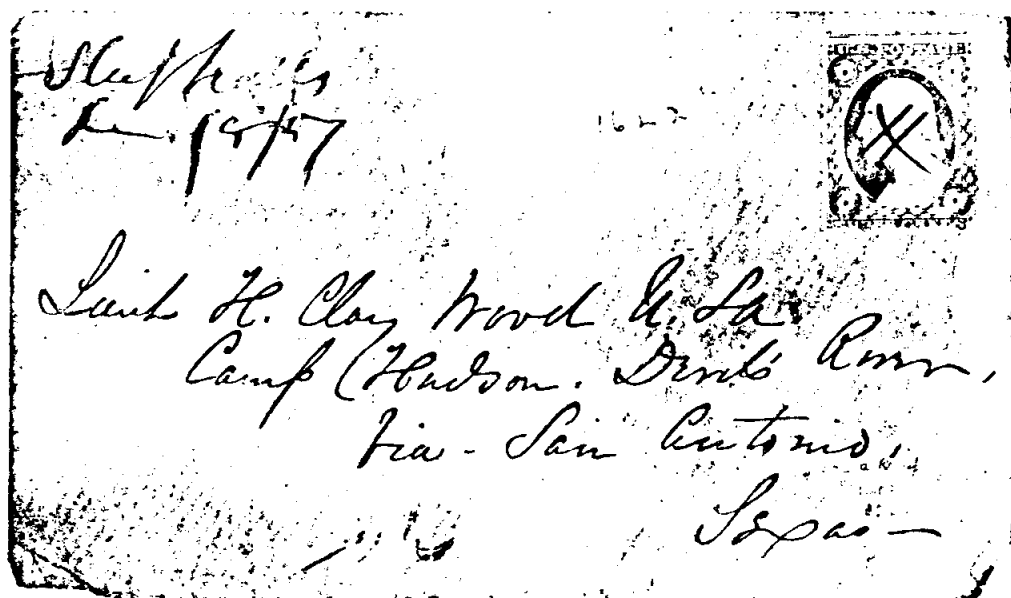 1622
Lieut H. Clay Wood U.S.a.
Camp Hudson. Devil's River,
Via - San Antonio,
Texas -